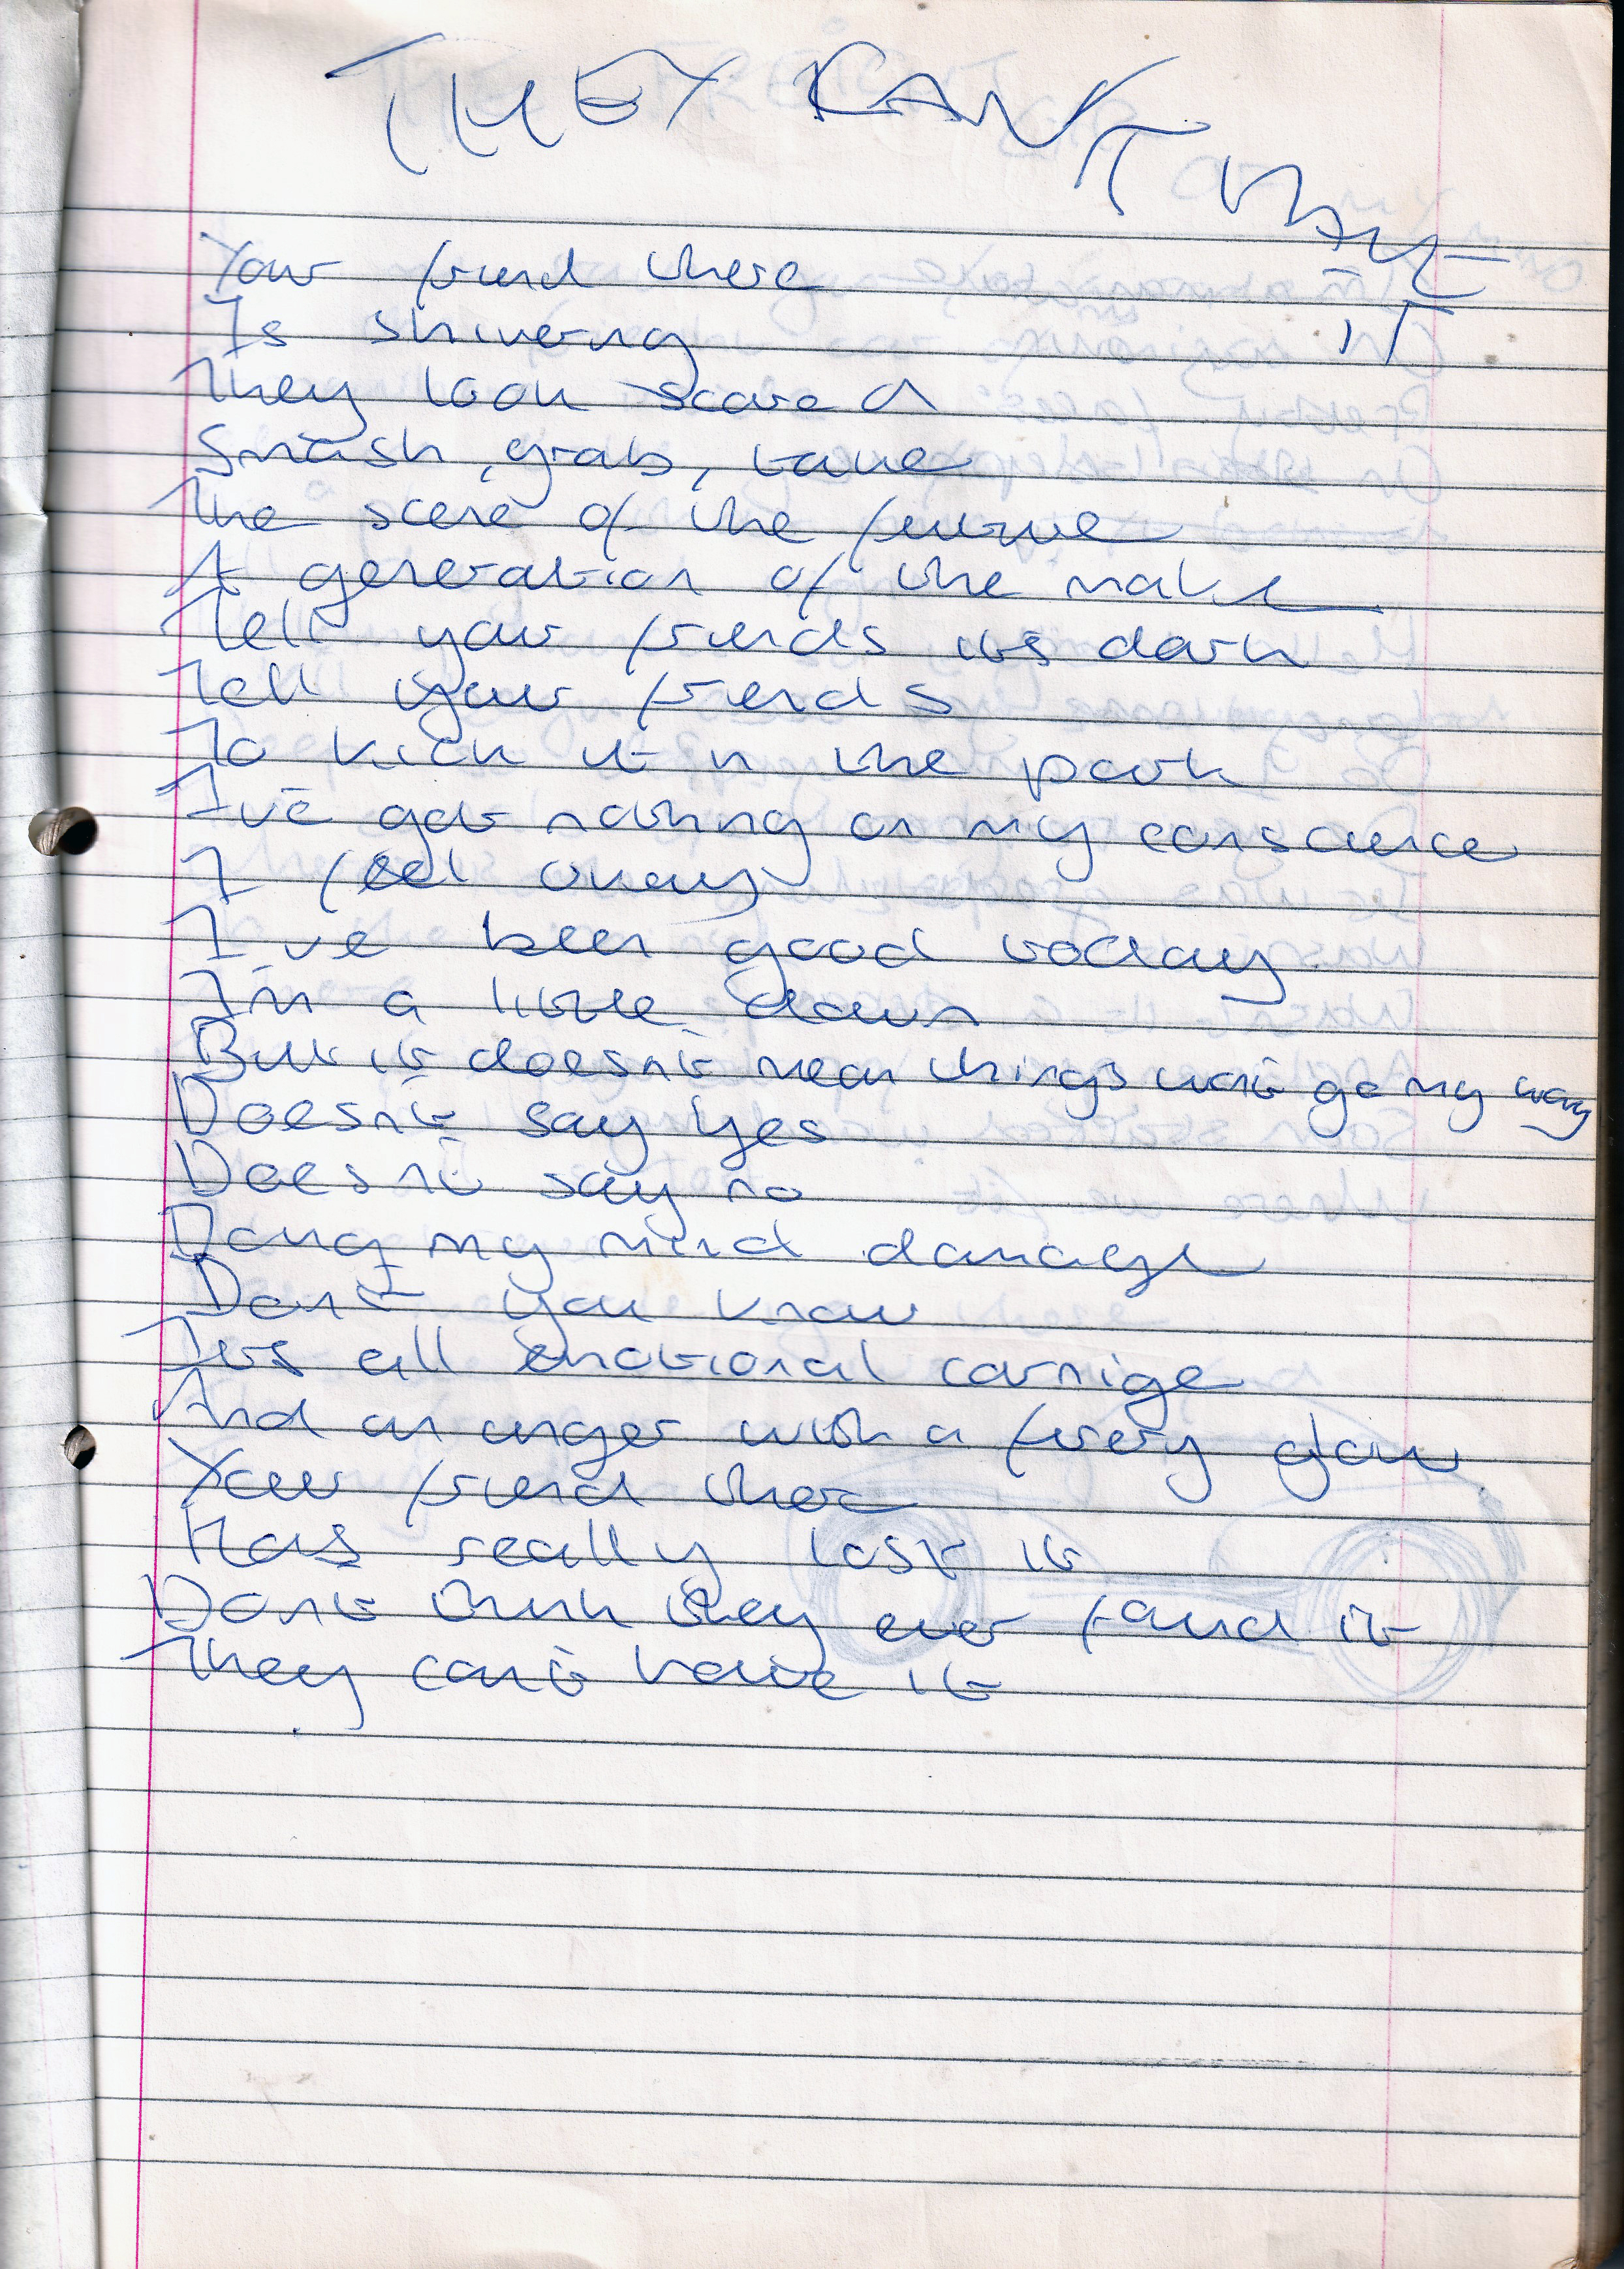 THEY KAN'T HAVE
IT
Your friend there
Is shivering
They look scared
Smash, grab, take
The scene of the future
A generation of the make
Tell your friends its dark
Tell your friends
To kick it in the park
I've got nothing on my conscience
I feel okay
I've been good today
I'm a little down
But it doesn't mean things won't go my way
Doesn't say yes
Doesn't say no
Doing my mind damage
Don't you know
Its all emotional carnige
And an anger with a firery glow
Your friend there
Has really lost it
Don't think they ever found it
They can't have it